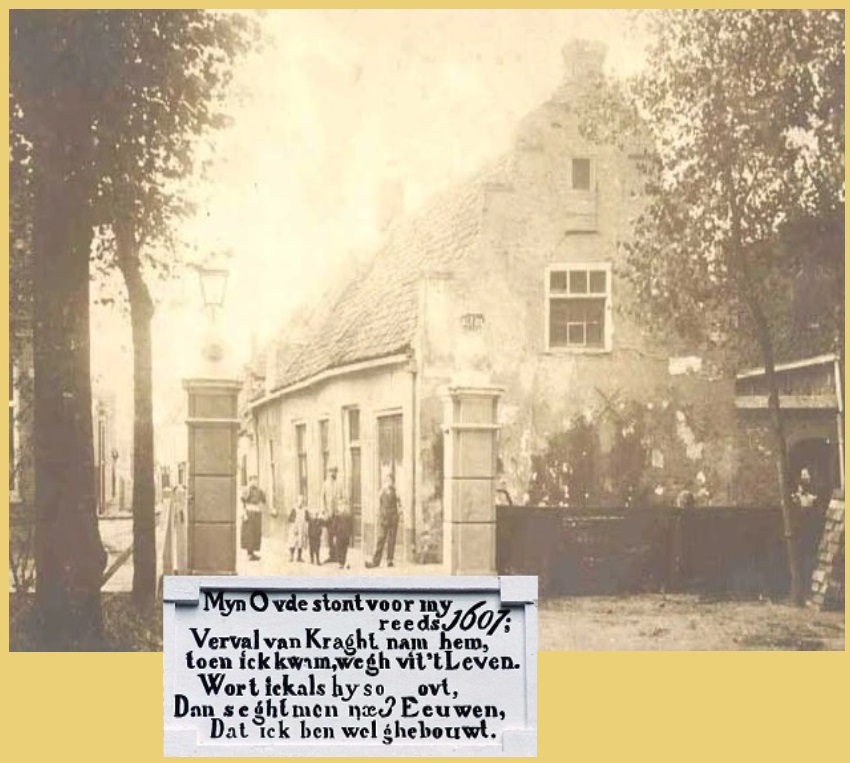 Myn Ovde stont voor my
reeds 1607;
Verval van Kraght nam hem,
toen ick kwam, wegh vit 't Leven.
Wort ick als hy so ovt,
Dan seght men næ 3 Eeuwen,
Dat ick ben wel ghebouwt.